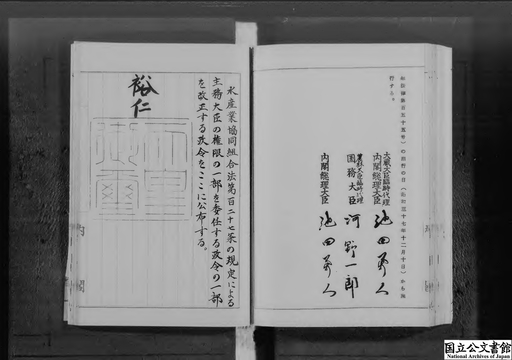 水産業協同組合法第百二十七条の規定による
主務大臣の権限の一部を委任する政令の一部
を改正する政令をここに公布する。
裕仁
行する。
大蔵大臣臨時代理
内閣総理大臣 池田勇人
農林大臣臨時代理
国務大臣 河野一郎
内閣総理大臣 池田勇人
国立公文書館
National Archives of Japan